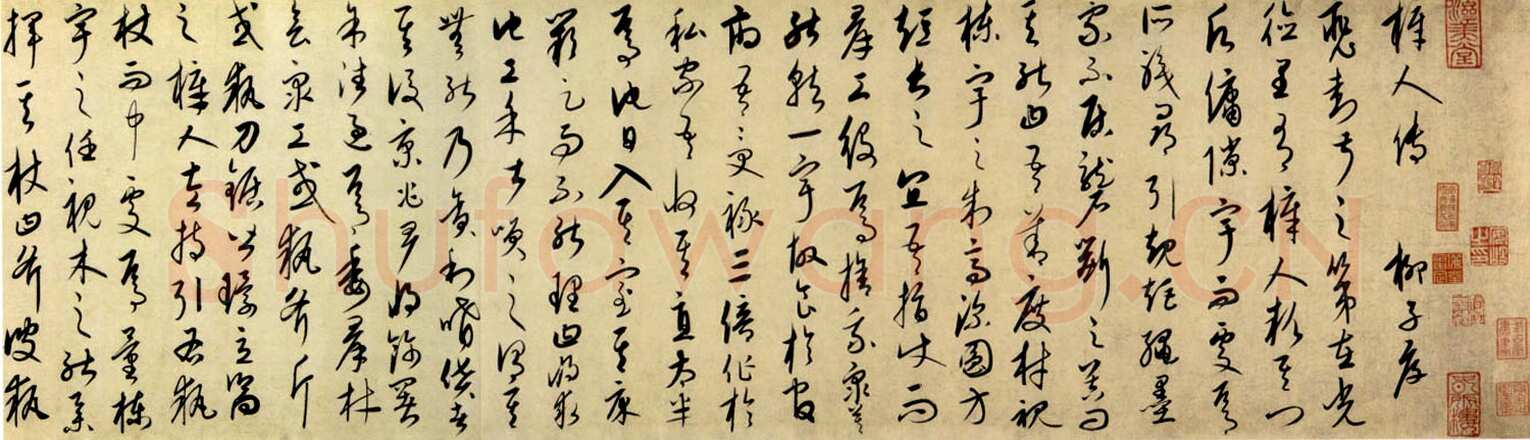 梓人傳 柳子厚
裴封叔之第在光
德里有梓人款其門
願傭隙宇而處焉
所職尋引規矩繩墨
家不居礱斲之器問
其能曰吾善度材視
棟宇之制高深圓方
短長之宜吾指使而
群工役焉捨我衆莫
能就一宇故食於官
府吾受祿三倍作於
私家吾收其直大半
焉他日入其室其床
闕足而不能理曰將求
他工余甚笑之謂其
無能乃貪利嗜貨者
其後京兆尹將飾官署
余往過焉委群材
會衆工或執斧斤
或執刀鋸皆環立嚮
之梓人左持引右執
杖而中處焉量棟
宇之任視木之能舉
揮其杖曰斧彼執
Shufawang.CN